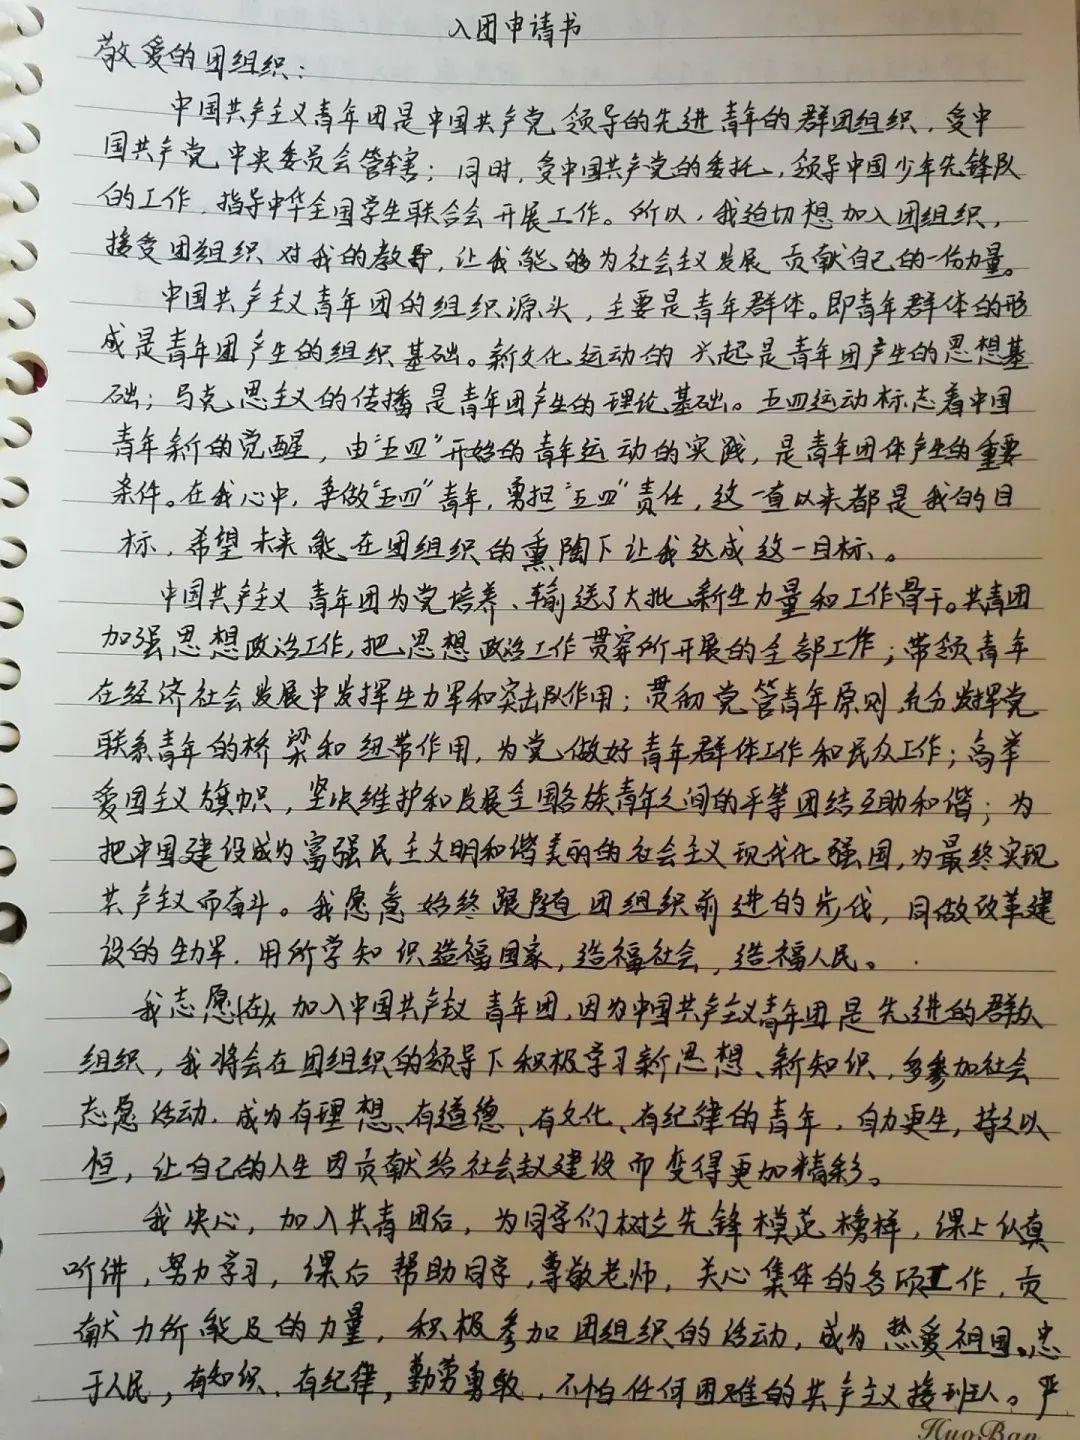 入团申请书
敬爱的团组织：
中国共产主义青年团是中国共产党领导的先进青年的群团组织，受中
国共产党中央委员会管辖；同时，受中国共产党的委托，领导中国少年先锋队
的工作，指导中华全国学生联合会开展工作。所以，我迫切想加入团组织，
接受团组织对我的教导，让我能够为社会主义发展贡献自己的一份力量。
中国共产主义青年团的组织源头，主要是青年群体。即青年群体的形
成是青年团产生的组织基础。新文化运动的兴起是青年团产生的思想基
础；马克思主义的传播是青年团产生的理论基础。五四运动标志着中国
青年新的觉醒，由“五四”开始的青年运动的实践，是青年团体产生的重要
条件。在我心中，争做“五四”青年，勇担“五四”责任，这一直以来都是我的目
标，希望未来能在团组织的熏陶下让我达成这一目标、。
中国共产主义青年团为党培养、输送了大批新生力量和工作骨干。共青团
加强思想政治工作，把思想政治工作贯穿所开展的全部工作；带领青年
在经济社会发展中发挥生力军和突击队作用；贯彻党管青年原则，充分发挥党
联系青年的桥梁和纽带作用，为党做好青年群体工作和民众工作；高举
爱国主义旗帜，坚决维护和发展全国各族青年之间的平等团结互助和谐；为
把中国建设成为富强民主文明和谐美丽的社会主义现代化强国，为最终实现
共产主义而奋斗。我愿意始终跟随团组织前进的步伐，同做改革建
设的生力军，用所学知识造福国家，造福社会，造福人民。
我志愿加入中国共产主义青年团，因为中国共产主义青年团是先进的群众
组织，我将会在团组织的领导下积极学习新思想、新知识，多参加社会
志愿活动，成为有理想、有道德、有文化、有纪律的青年，自力更生，持之以
恒，让自己的人生因贡献给社会主义建设而变得更加精彩。
我决心，加入共青团后，为同学们树立先锋模范榜样，课上认真
听讲，努力学习，课后帮助同学，尊敬老师，关心集体的各项工作，贡
献力所能及的力量，积极参加团组织的活动，成为热爱祖国、忠
于人民，有知识、有纪律，勤劳勇敢、不怕任何困难的共产主义接班人。严
HuoBan